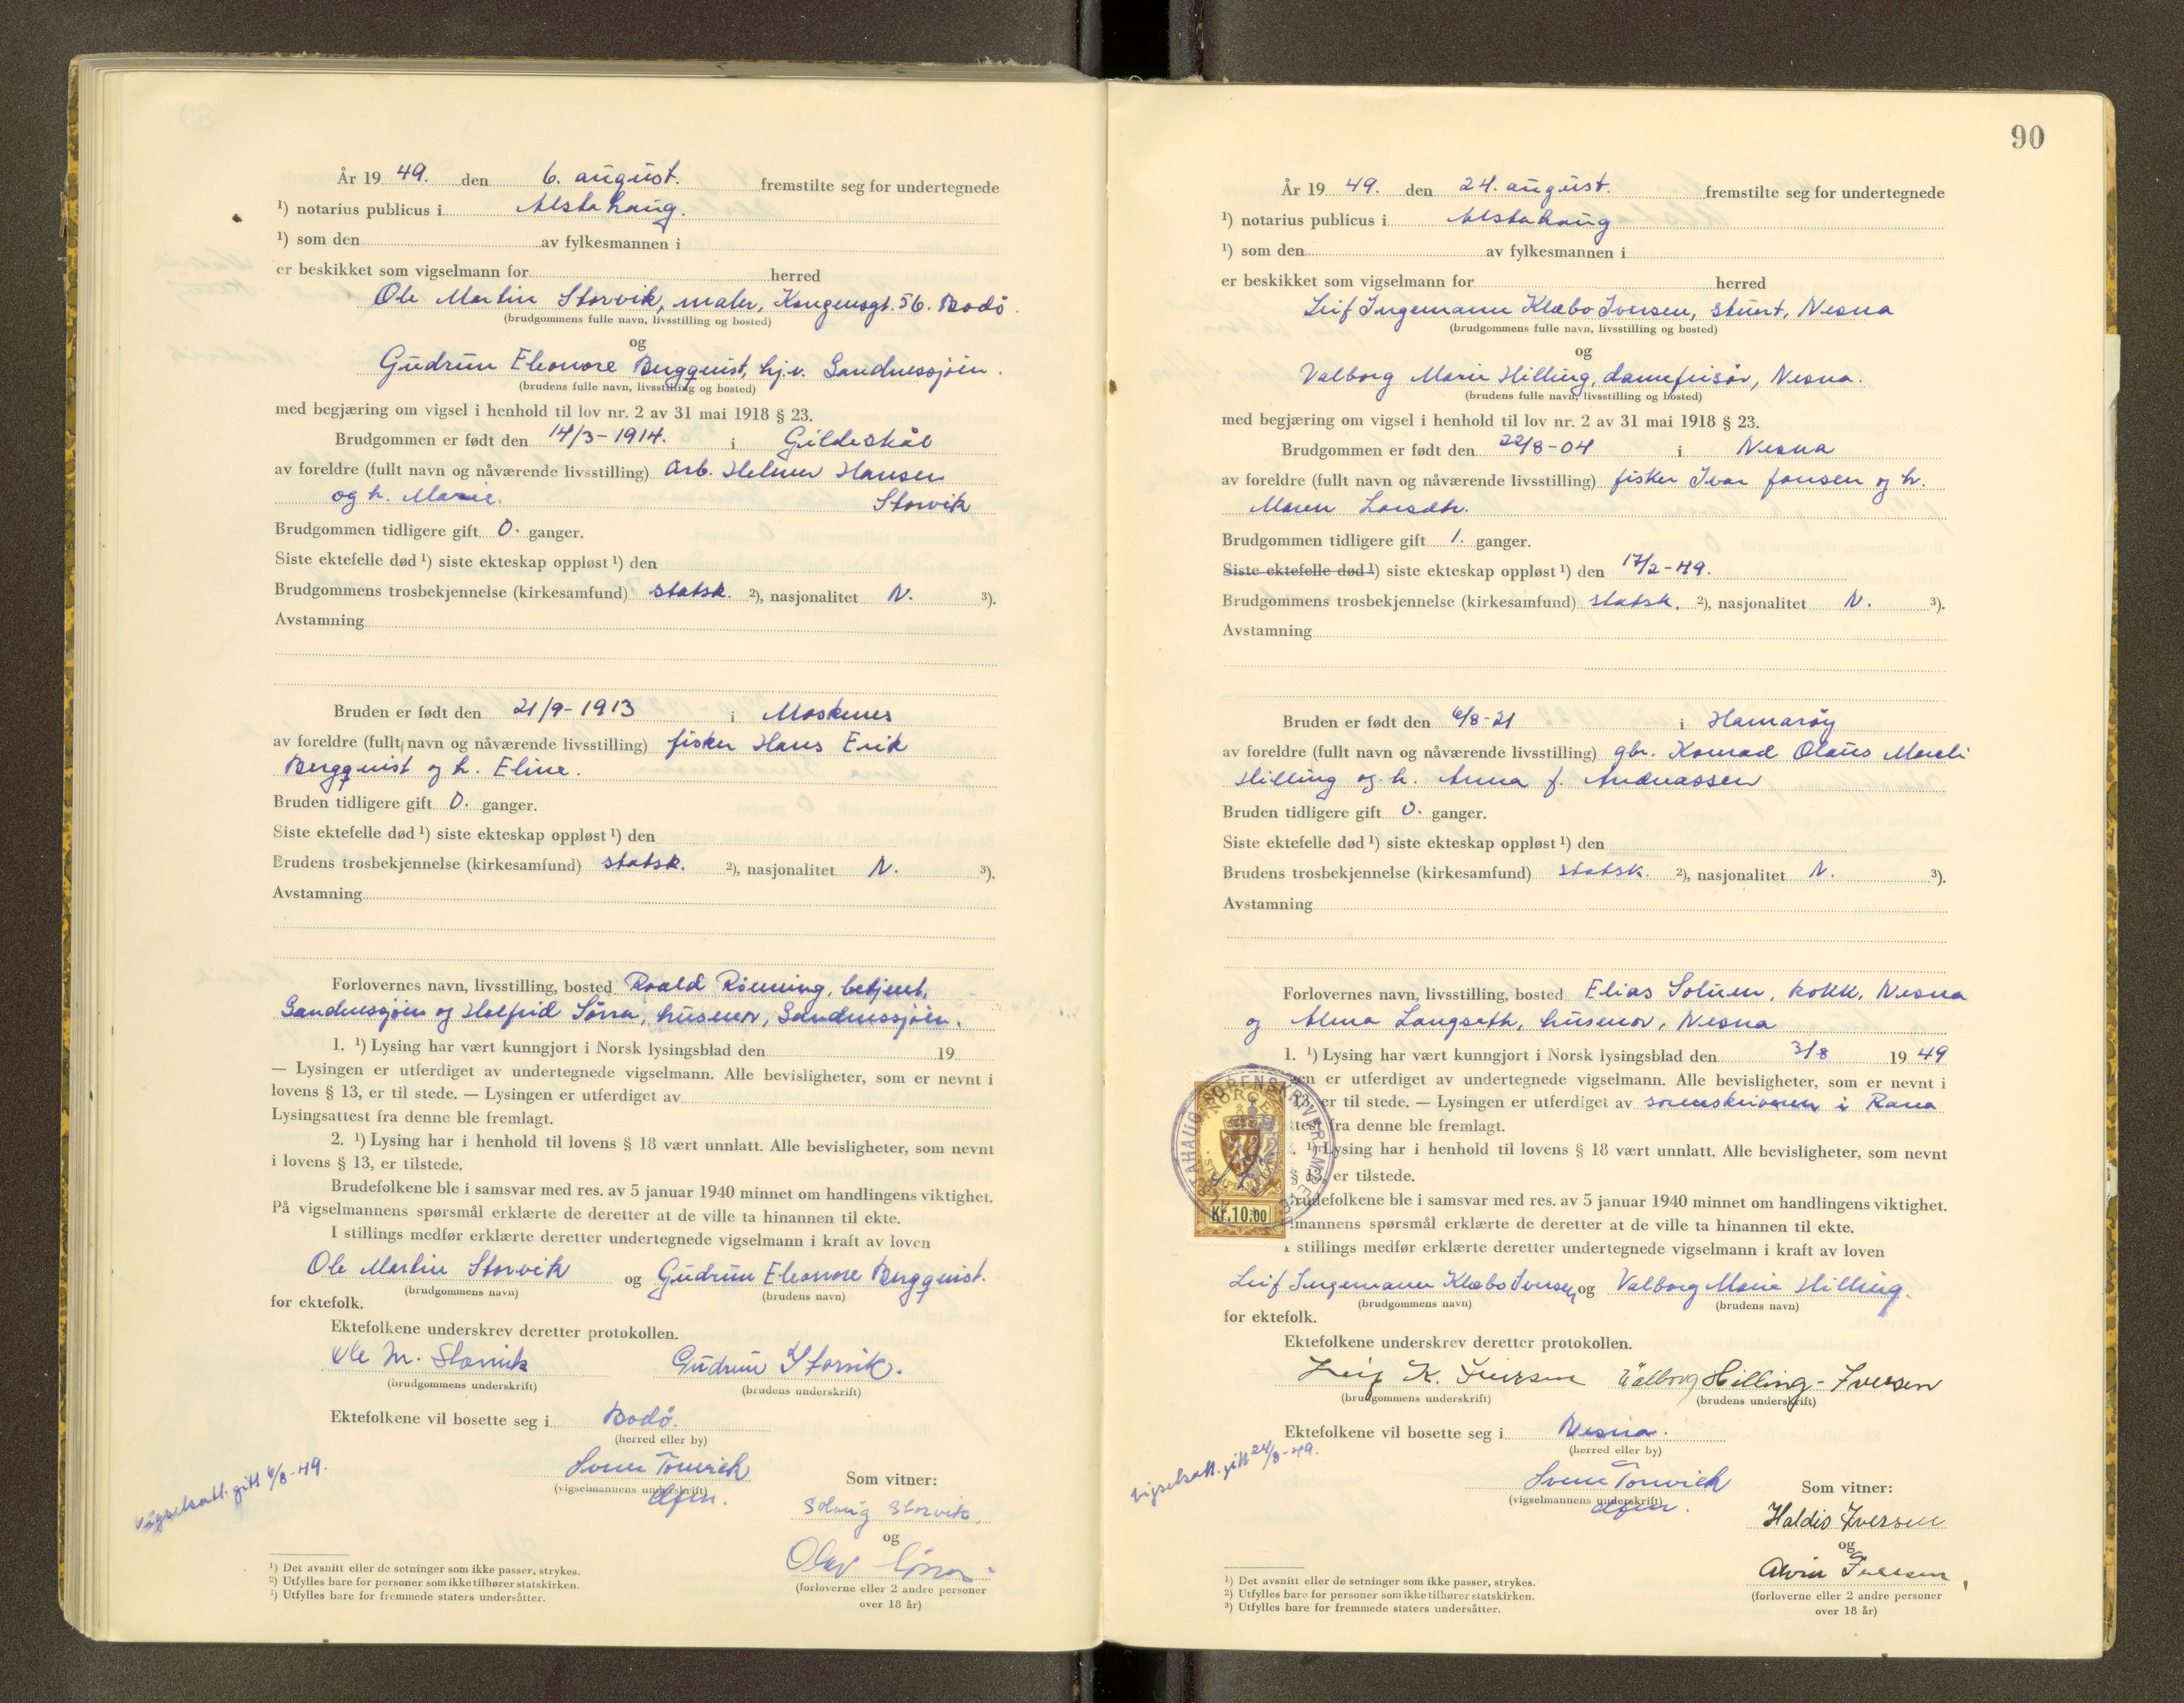 År 19 49. den 6. august. fremstilte seg for undertegnede
¹) notarius publicus i Alstahaug.
¹) som den av fylkesmannen i
er beskikket som vigselmann for herred
Ole Martin Storvik, maler, Kongensgt. 56. Bodö.
(brudgommens fulle navn, livsstilling og bosted)
og
Gudrun Eleonore Bergquist, hj.v. Sandnessjöen.
(brudens fulle navn, livsstilling og bosted)
med begjæring om vigsel i henhold til lov nr. 2 av 31 mai 1918 § 23.
Brudgommen er født den 14/3-1914. i Gildeskål
av foreldre (fullt navn og nåværende livsstilling) arb. Helmer Hansen
og h. Marie. Storvik
Brudgommen tidligere gift 0. ganger.
Siste ektefelle død ¹) siste ekteskap oppløst ¹) den
Brudgommens trosbekjennelse (kirkesamfund) statsk. ²), nasjonalitet N. ³).
Avstamning
Bruden er født den 21/9-1913 i Moskenes
av foreldre (fullt navn og nåværende livsstilling) fisker Hans Erik
Bergquist og h. Eline.
Bruden tidligere gift 0. ganger.
Siste ektefelle død ¹) siste ekteskap oppløst ¹) den
Brudens trosbekjennelse (kirkesamfund) statsk. ²), nasjonalitet N. ³).
Avstamning
Forlovernes navn, livsstilling, bosted Roald Rönning, betjent,
Sandnessjöen og Halfrid Sörra, husmor, Sandnessjöen.
1. ¹) Lysing har vært kunngjort i Norsk lysingsblad den 19
— Lysingen er utferdiget av undertegnede vigselmann. Alle bevisligheter, som er nevnt i
lovens § 13, er til stede. — Lysingen er utferdiget av
Lysingsattest fra denne ble fremlagt.
2. ¹) Lysing har i henhold til lovens § 18 vært unnlatt. Alle bevisligheter, som nevnt
i lovens § 13, er tilstede.
Brudefolkene ble i samsvar med res. av 5 januar 1940 minnet om handlingens viktighet.
På vigselmannens spørsmål erklærte de deretter at de ville ta hinannen til ekte.
I stillings medfør erklærte deretter undertegnede vigselmann i kraft av loven
Ole Martin Storvik og Gudrun Eleonore Bergquist.
(brudgommens navn) (brudens navn)
for ektefolk.
Ektefolkene underskrev deretter protokollen.
Ole M. Storvik Gudrun Storvik.
(brudgommens underskrift) (brudens underskrift)
Ektefolkene vil bosette seg i Bodö.
(herred eller by)
vigselsatt. gitt 6/8-49.
(vigselmannens underskrift)
Som vitner:
Solveig Storvik,
og
Olav
(forloverne eller 2 andre personer
over 18 år)
¹) Det avsnitt eller de setninger som ikke passer, strykes.
²) Utfylles bare for personer som ikke tilhører statskirken.
³) Utfylles bare for fremmede staters undersåtter.
90
År 19 49. den 24. august. fremstilte seg for undertegnede
¹) notarius publicus i Alstahaug
¹) som den av fylkesmannen i
er beskikket som vigselmann for herred
Leif Ingemann Klæbo Iversen, stuert, Nesna
(brudgommens fulle navn, livsstilling og bosted)
og
Valborg Marie Hilling, damefrisör, Nesna.
(brudens fulle navn, livsstilling og bosted)
med begjæring om vigsel i henhold til lov nr. 2 av 31 mai 1918 § 23.
Brudgommen er født den 22/8-04 i Nesna
av foreldre (fullt navn og nåværende livsstilling) fisker Ivar Jonsen og h.
Maren Larsdtr.
Brudgommen tidligere gift 1. ganger.
Siste ektefelle død ¹) siste ekteskap oppløst ¹) den 17/2-49.
Brudgommens trosbekjennelse (kirkesamfund) statsk. ²), nasjonalitet N. ³).
Avstamning
Bruden er født den 6/8-21 i Hamaröy
av foreldre (fullt navn og nåværende livsstilling) gbr. Konrad Olaus Mareli
Hilling og h. Anna J. Andreassen
Bruden tidligere gift 0. ganger.
Siste ektefelle død ¹) siste ekteskap oppløst ¹) den
Brudens trosbekjennelse (kirkesamfund) statsk. ²), nasjonalitet N. ³).
Avstamning
Forlovernes navn, livsstilling, bosted Elias Solum, kokk, Nesna
og Alma Langseth, husmor, Nesna
1. ¹) Lysing har vært kunngjort i Norsk lysingsblad den 3/8 19 49
gen er utferdiget av undertegnede vigselmann. Alle bevisligheter, som er nevnt i
13, er til stede. — Lysingen er utferdiget av sorenskriveren i Rana
ttest fra denne ble fremlagt.
. ¹) Lysing har i henhold til lovens § 18 vært unnlatt. Alle bevisligheter, som nevnt
§ 13, er tilstede.
rudefolkene ble i samsvar med res. av 5 januar 1940 minnet om handlingens viktighet.
mannens spørsmål erklærte de deretter at de ville ta hinannen til ekte.
I stillings medfør erklærte deretter undertegnede vigselmann i kraft av loven
NORGE
Kr. 10.00
Leif Ingemann Klæbo Iversen og Valborg Marie Hilling.
(brudgommens navn) (brudens navn)
for ektefolk.
Ektefolkene underskrev deretter protokollen.
Leif K. Iversen Valborg Hilling-Iversen
(brudgommens underskrift) (brudens underskrift)
Ektefolkene vil bosette seg i Nesna.
(herred eller by)
vigselsatt. gitt 24/8-49.
(vigselmannens underskrift)
Som vitner:
Haldis Iversen
og
Alvin Iversen,
(forloverne eller 2 andre personer
over 18 år)
¹) Det avsnitt eller de setninger som ikke passer, strykes.
²) Utfylles bare for personer som ikke tilhører statskirken.
³) Utfylles bare for fremmede staters undersåtter.